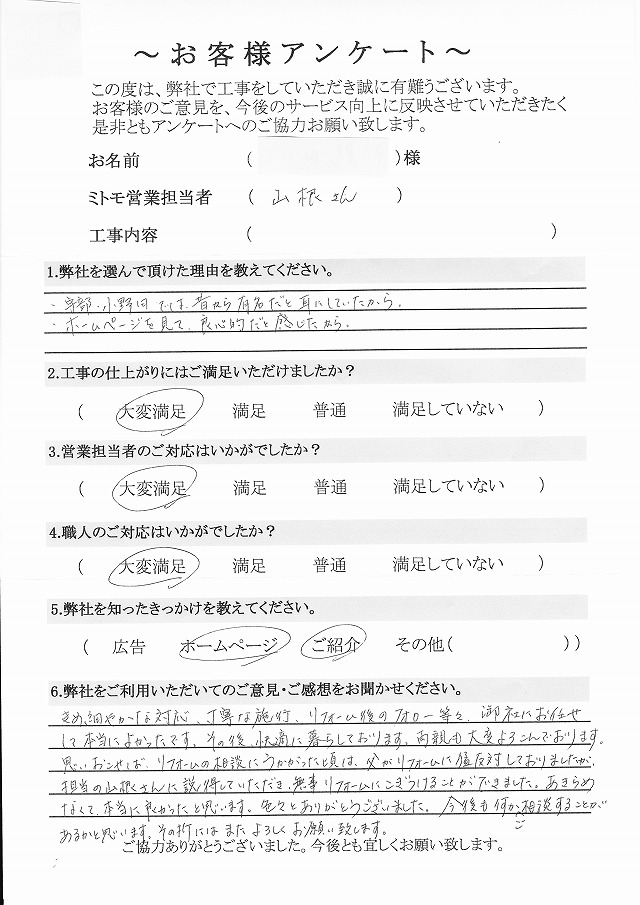 ～お客様アンケート～
この度は、弊社で工事をしていただき誠に有難うございます。
お客様のご意見を、今後のサービス向上に反映させていただきたく
是非ともアンケートへのご協力お願い致します。
お名前 ( )様
ミトモ営業担当者 ( 山根さん )
工事内容 ( )
1.弊社を選んで頂けた理由を教えてください。
・宇部・小野田では、昔から有名だと耳にしていたから。
・ホームページを見て、良心的だと感じたから。
2.工事の仕上がりにはご満足いただけましたか？
( 大変満足 満足 普通 満足していない )
3.営業担当者のご対応はいかがでしたか？
( 大変満足 満足 普通 満足していない )
4.職人のご対応はいかがでしたか？
( 大変満足 満足 普通 満足していない )
5.弊社を知ったきっかけを教えてください。
( 広告 ホームページ ご紹介 その他( ))
6.弊社をご利用いただいてのご意見・ご感想をお聞かせください。
きめ細やかな対応、丁寧な施行、リフォーム後のフォロー等々、御社にお任せ
して本当によかったです。その後、快適に暮らしております。両親も大変よろこんでおります。
思いおこせば、リフォームの相談にうかがった頃は、父がリフォームに猛反対しておりましたが、
担当の山根さんに説得していただき、無事リフォームにこぎつけることができました。あきらめ
なくて、本当に良かったと思います。色々とありがとうございました。今後も何かご相談することが
あるかと思います。その折にはまたよろしくお願い致します。
ご協力ありがとうございました。今後とも宜しくお願い致します。